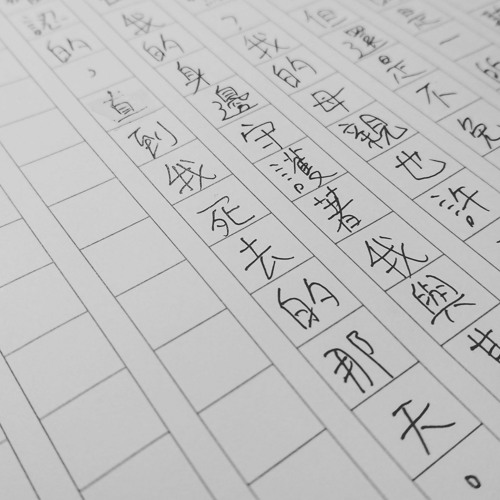 但還是不免
，我的母親也許
我的身邊守護著我與
認的，直到我死去的那天。